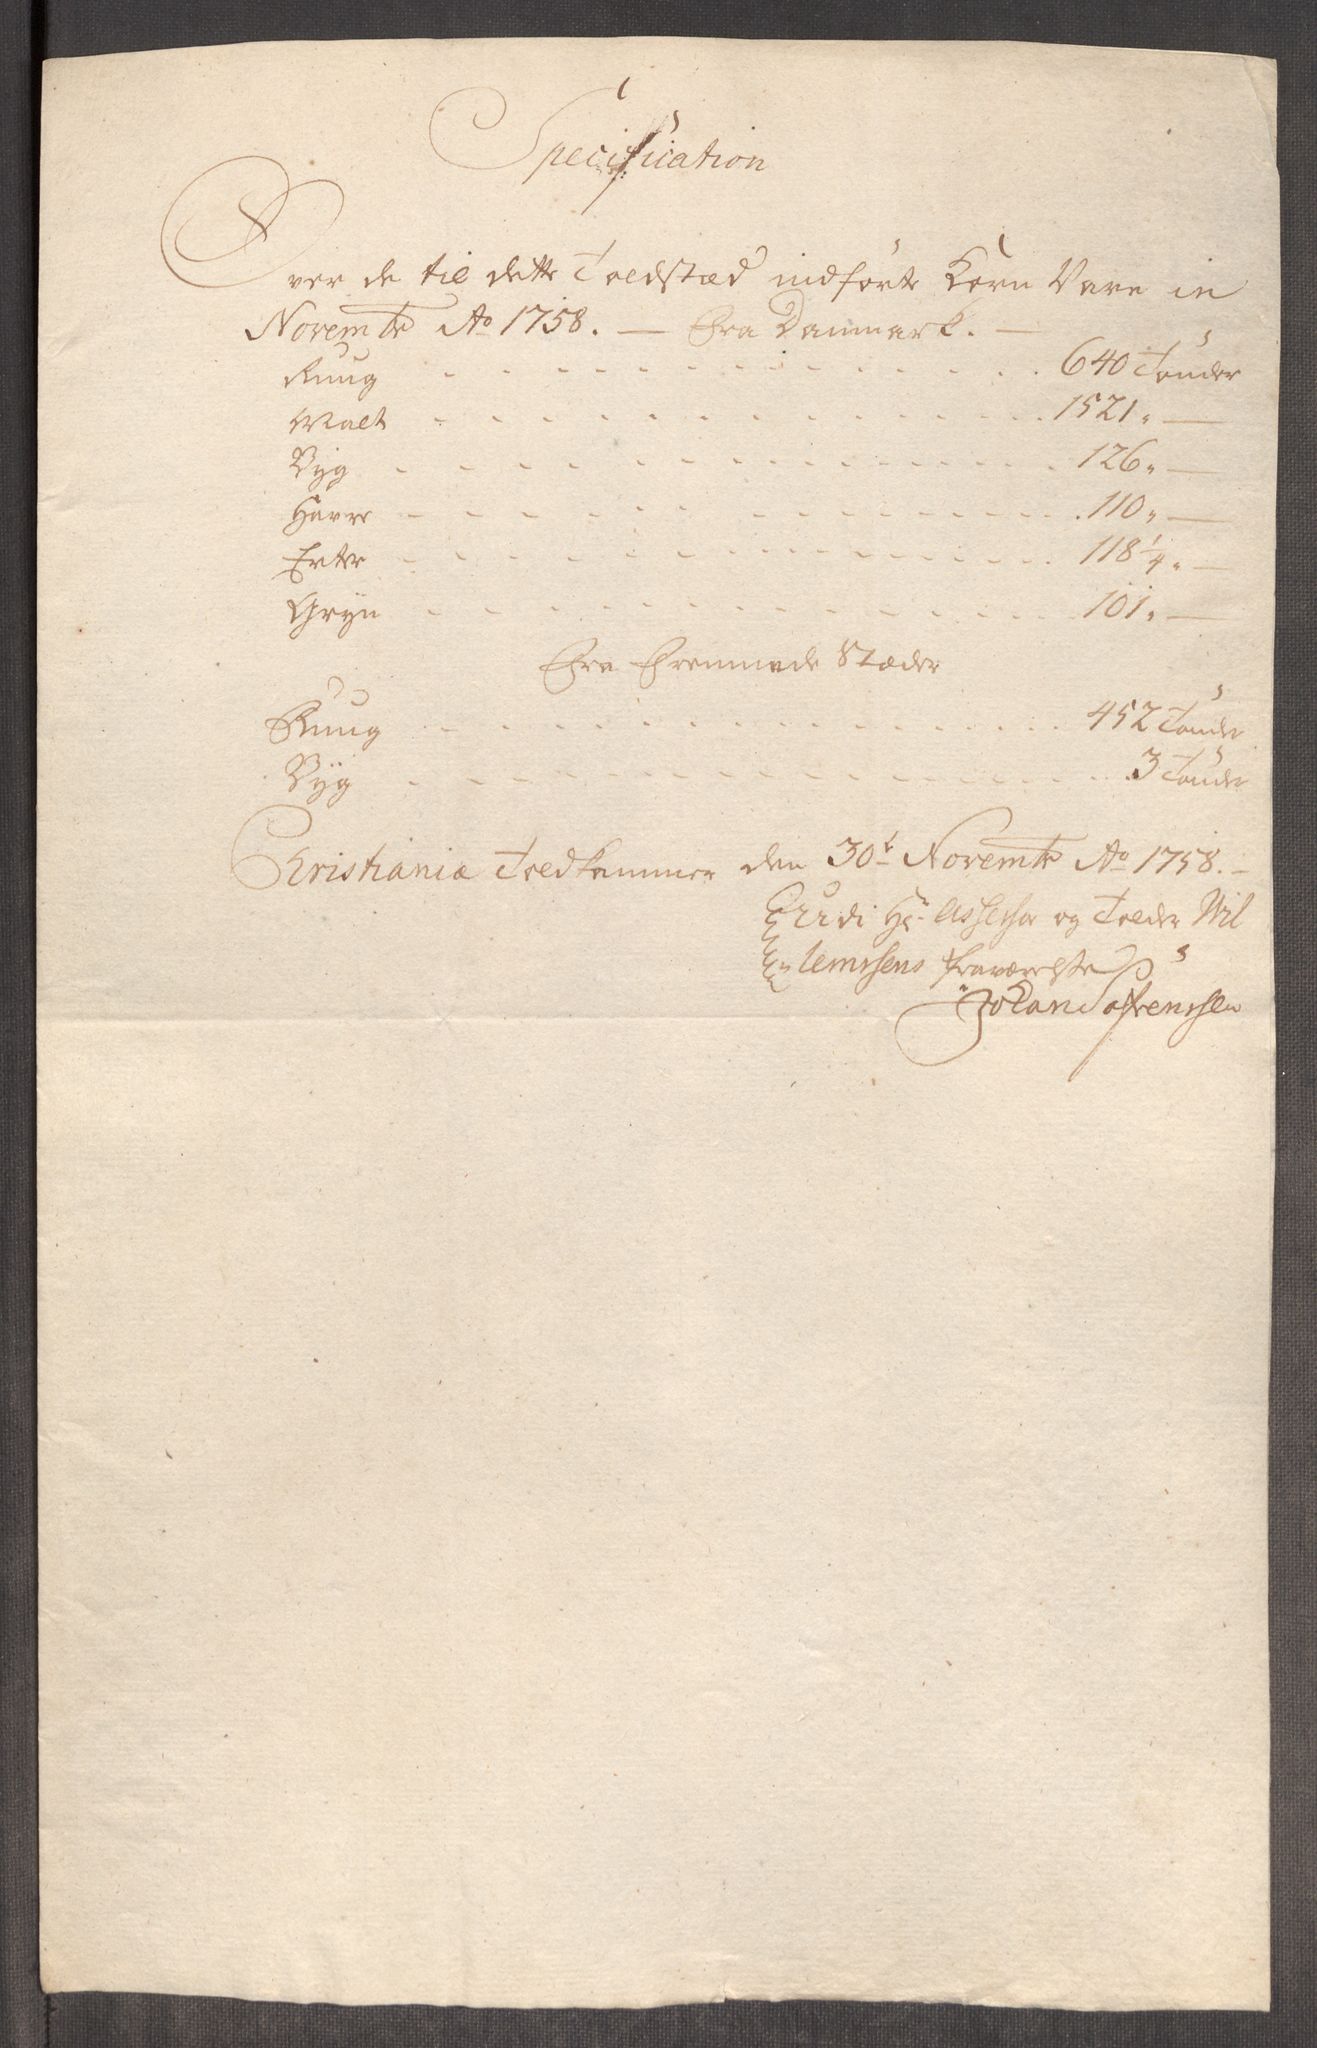 Specification
Over de til dette Toldstæd indførte Korn Vare in
Novembr Ao 1758. — Fra Danmark. —
Ruug 640 Tønder
Malt 1521 " —
Byg 126 " —
Havre 110 " —
Erter 118 1/4 " —
Gryn 101 " —
Fra Fremmede Stæder
Ruug 452 Tønder
Byg 3 Tønder
Christiania Toldkammer den 30t Novembr Ao 1758. –
Udi Hr Assessor og Tolder Wil
lemssens fraværelse
Johan